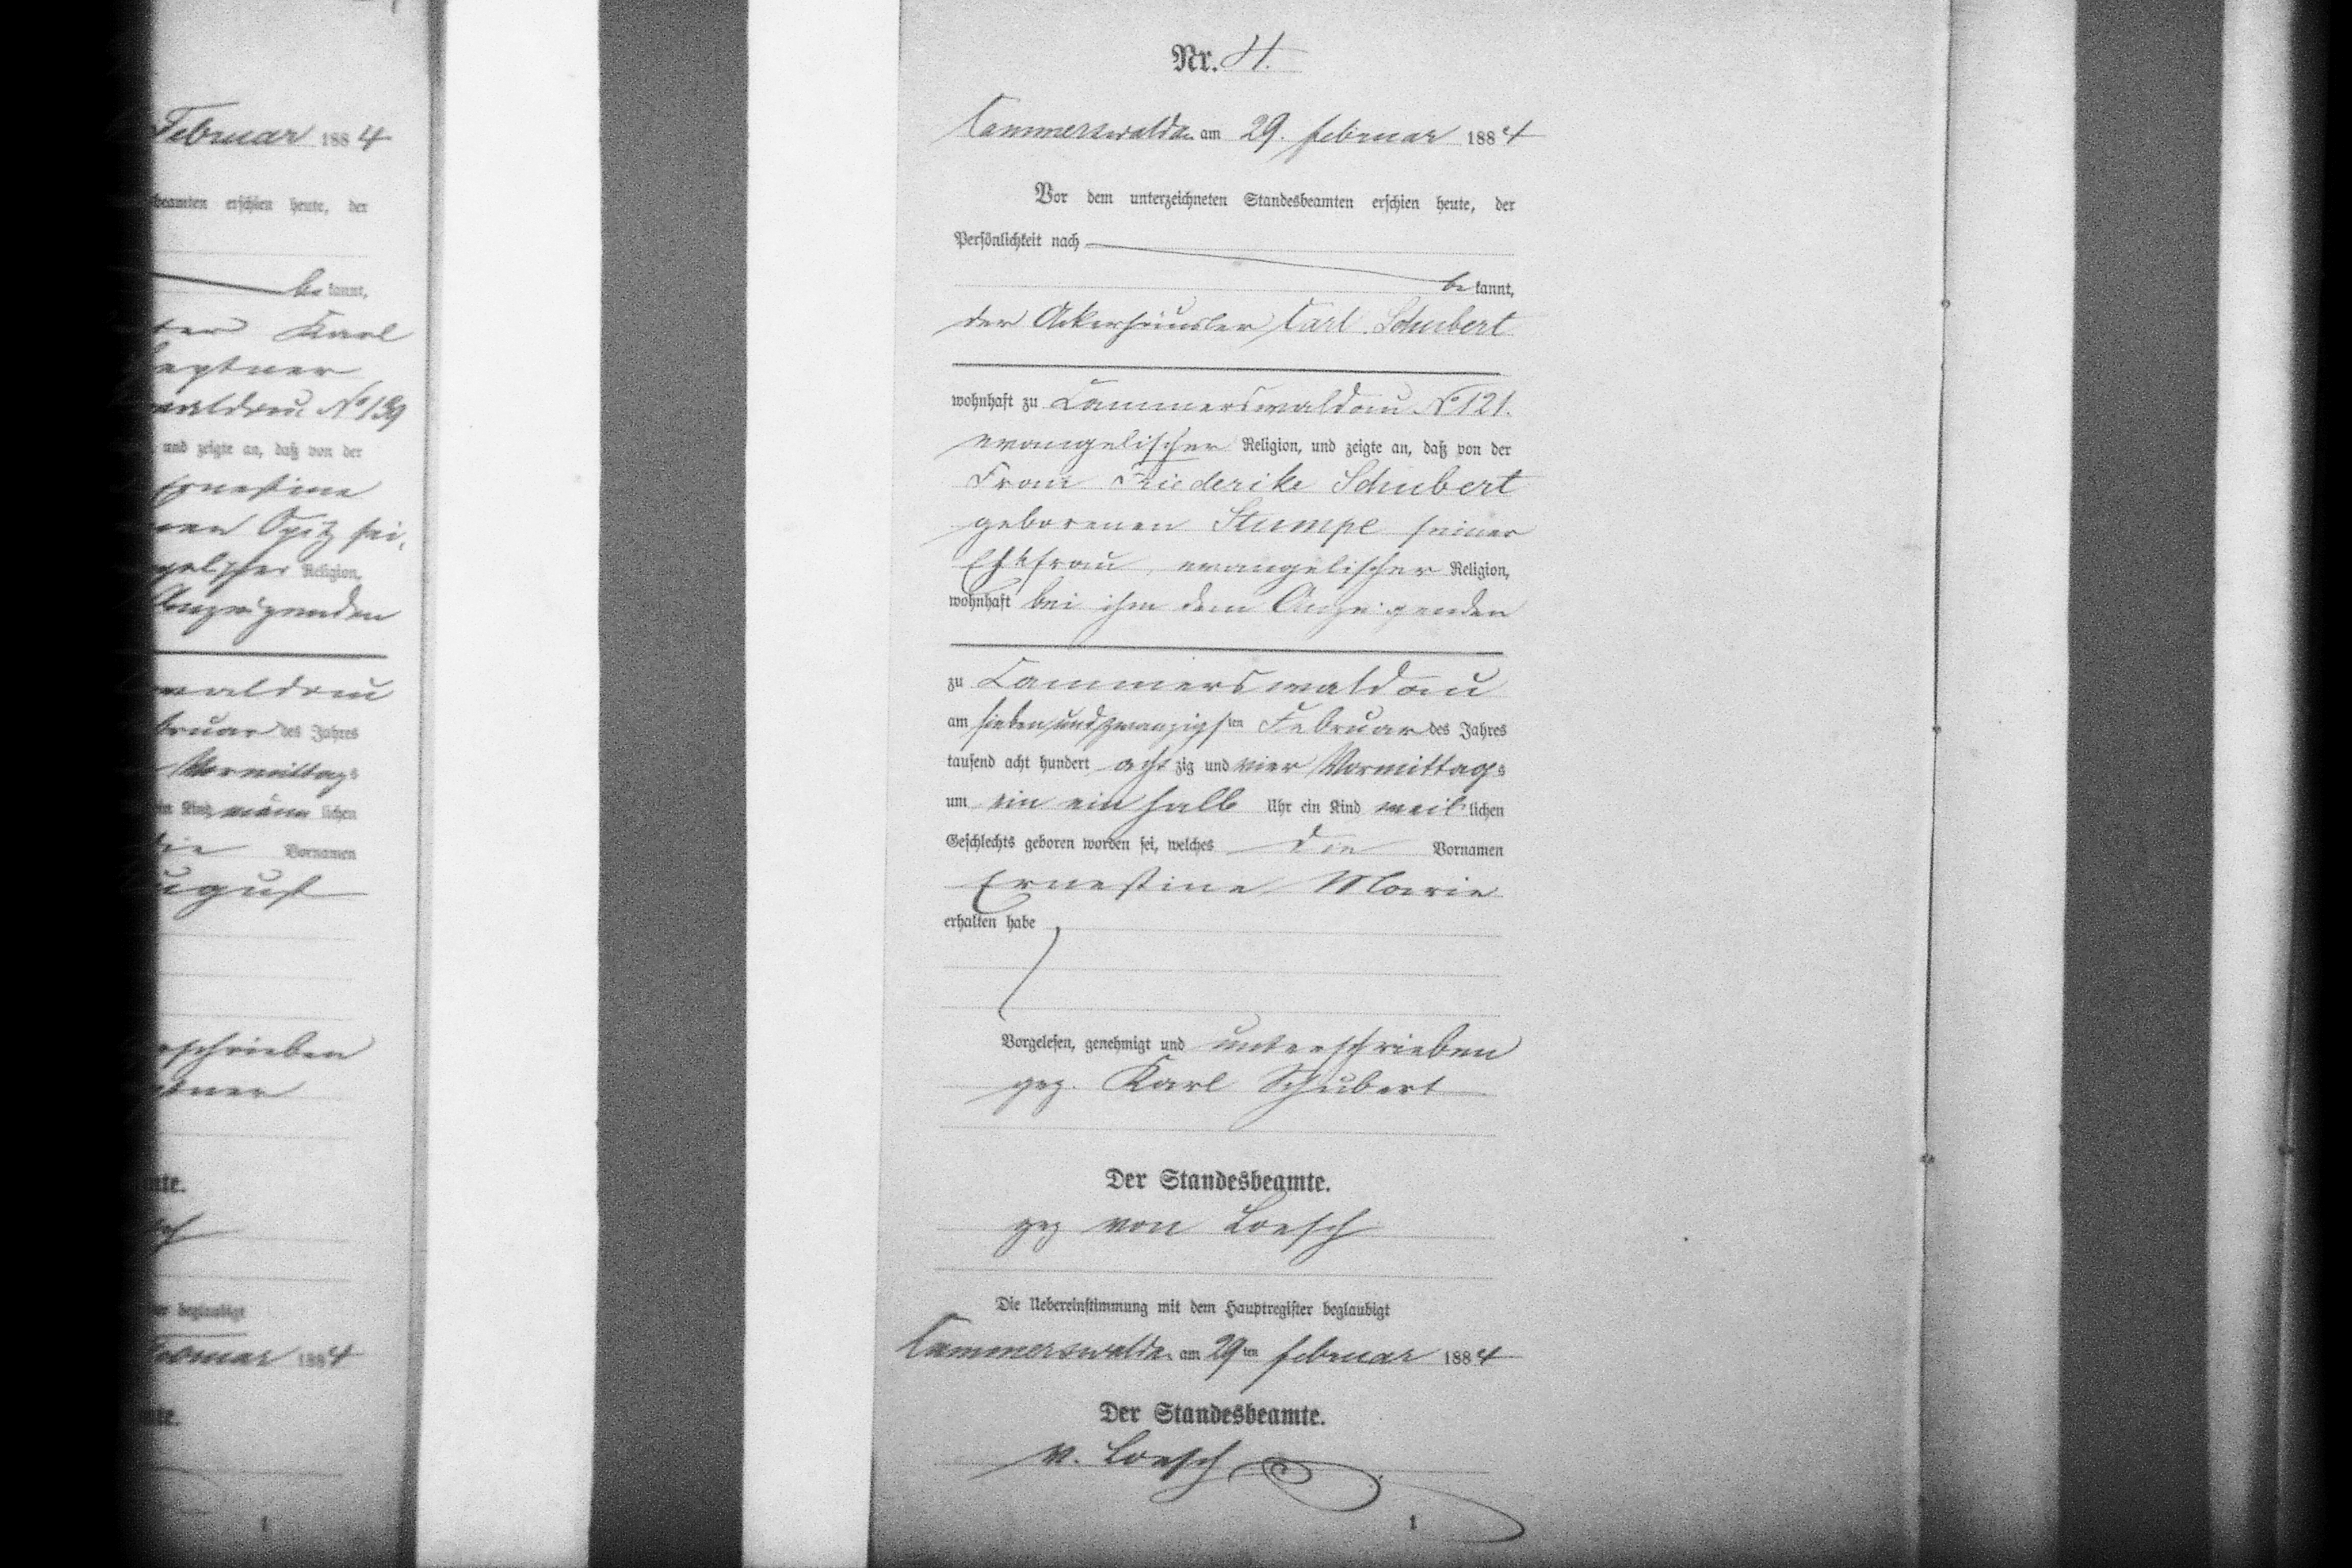 Februar 1884
beamten erschien heute, der
be kannt,
Karl
No 139
und zeigte an, daß von der
Ernestine
Opitz sei,
Religion,
Anzeigenden
waldau
bruar des Jahres
Vormittags
ein Kind männlichen
die Vornamen
August
schrieben
beglaubigt
Februar 1884
1
Nr.
Cammerswaldau am 29. Februar 1884
Vor dem unterzeichneten Standesbeamten erschien heute, der
Persönlichkeit nach
be kannt,
der Ackerhäusler Carl Schubert
wohnhaft zu Cammerswaldau No 121.
evangelischer Religion, und zeigte an, daß von der
Frau Friederike Schubert
geborenen Stumpe seiner
Ehefrau, evangelischer Religion,
wohnhaft bei ihm dem Anzeigenden
zu Cammerswaldau
am sieben und zwanzigsten Februar des Jahres
tausend acht hundert achtzig und vier Vormittags
um ein ein halb Uhr ein Kind weiblichen
Geschlechts geboren worden sei, welches die Vornamen
Ernestine Marie
erhalten habe
Vorgelesen, genehmigt und unterschrieben
gez. Karl Schubert
Der Standesbeamte.
gez von Loesch
Die Uebereinstimmung mit dem Hauptregister beglaubigt
Cammerswaldau am 29ten Februar 1884
Der Standesbeamte.
v. Loesch
1